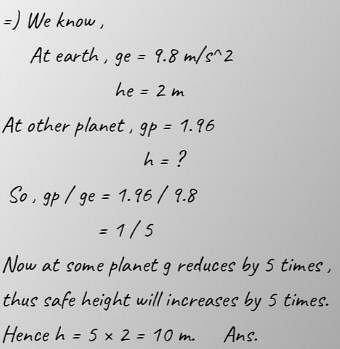 =) We know,
At earth, ge = 9.8 m/s^2
he = 2 m
At other planet, gp = 1.96
h = ?
So, gp / ge = 1.96 / 9.8
= 1 / 5
Now at some planet g reduces by 5 times,
thus safe height will increases by 5 times.
Hence h = 5 × 2 = 10 m. Ans.